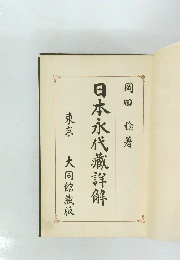 岡田 稔著
日本永代蔵詳解
東京 大同館蔵版